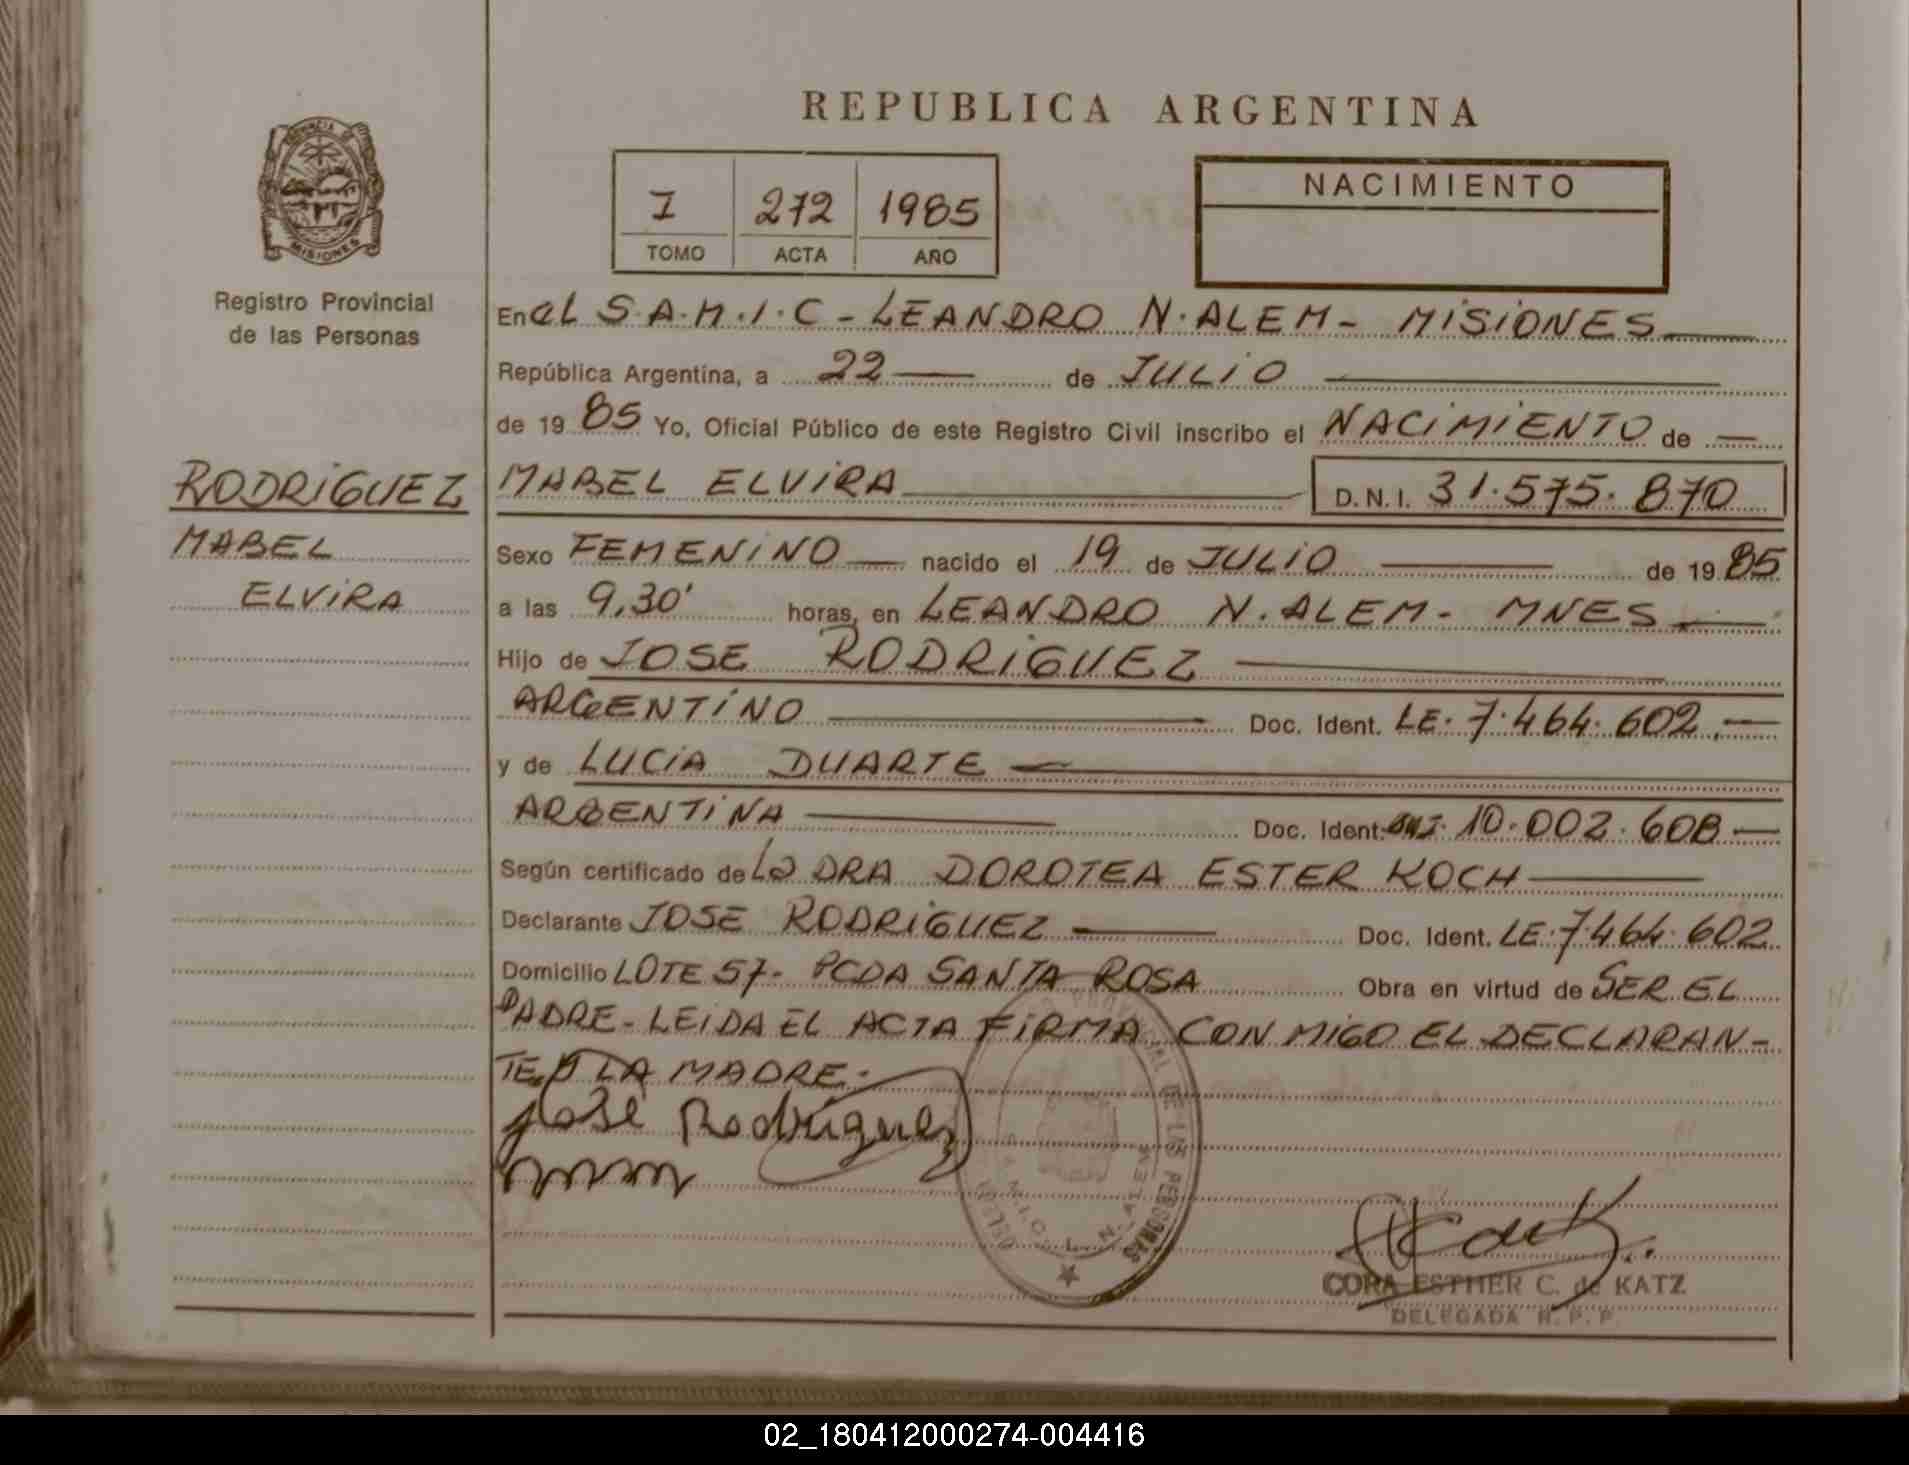 REPUBLICA ARGENTINA
PROVINCIA DE
MISIONES
Registro Provincial
de las Personas
I 272 1985
TOMO ACTA AÑO
NACIMIENTO
En el S.A.M.I.C - LEANDRO N. ALEM - MISIONES
República Argentina, a 22 de JULIO
de 1985 Yo, Oficial Público de este Registro Civil inscribo el NACIMIENTO de
RODRIGUEZ
MABEL
ELVIRA
MABEL ELVIRA D.N.I. 31.575.870
Sexo FEMENINO nacido el 19 de JULIO de 1985
a las 9,30' horas, en LEANDRO N. ALEM - MNES
Hijo de JOSE RODRIGUEZ
ARGENTINO Doc. Ident. LE. 7.464.602.
y de LUCIA DUARTE
ARGENTINA Doc. Ident. 10.002.608
Según certificado de La DRA DOROTEA ESTER KOCH
Declarante JOSE RODRIGUEZ Doc. Ident. LE. 7.464.602
Domicilio LOTE 57 - PCDA SANTA ROSA Obra en virtud de SER EL
PADRE - LEIDA EL ACTA FIRMA CON MIGO EL DECLARAN-
TE y LA MADRE.
José Rodriguez
PROVINCIAL DE LAS PERSONAS
S.A.M.I.C. L. N. ALEM
Katz
CORA ESTHER C. de KATZ
DELEGADA R. P. P.
02_180412000274-004416